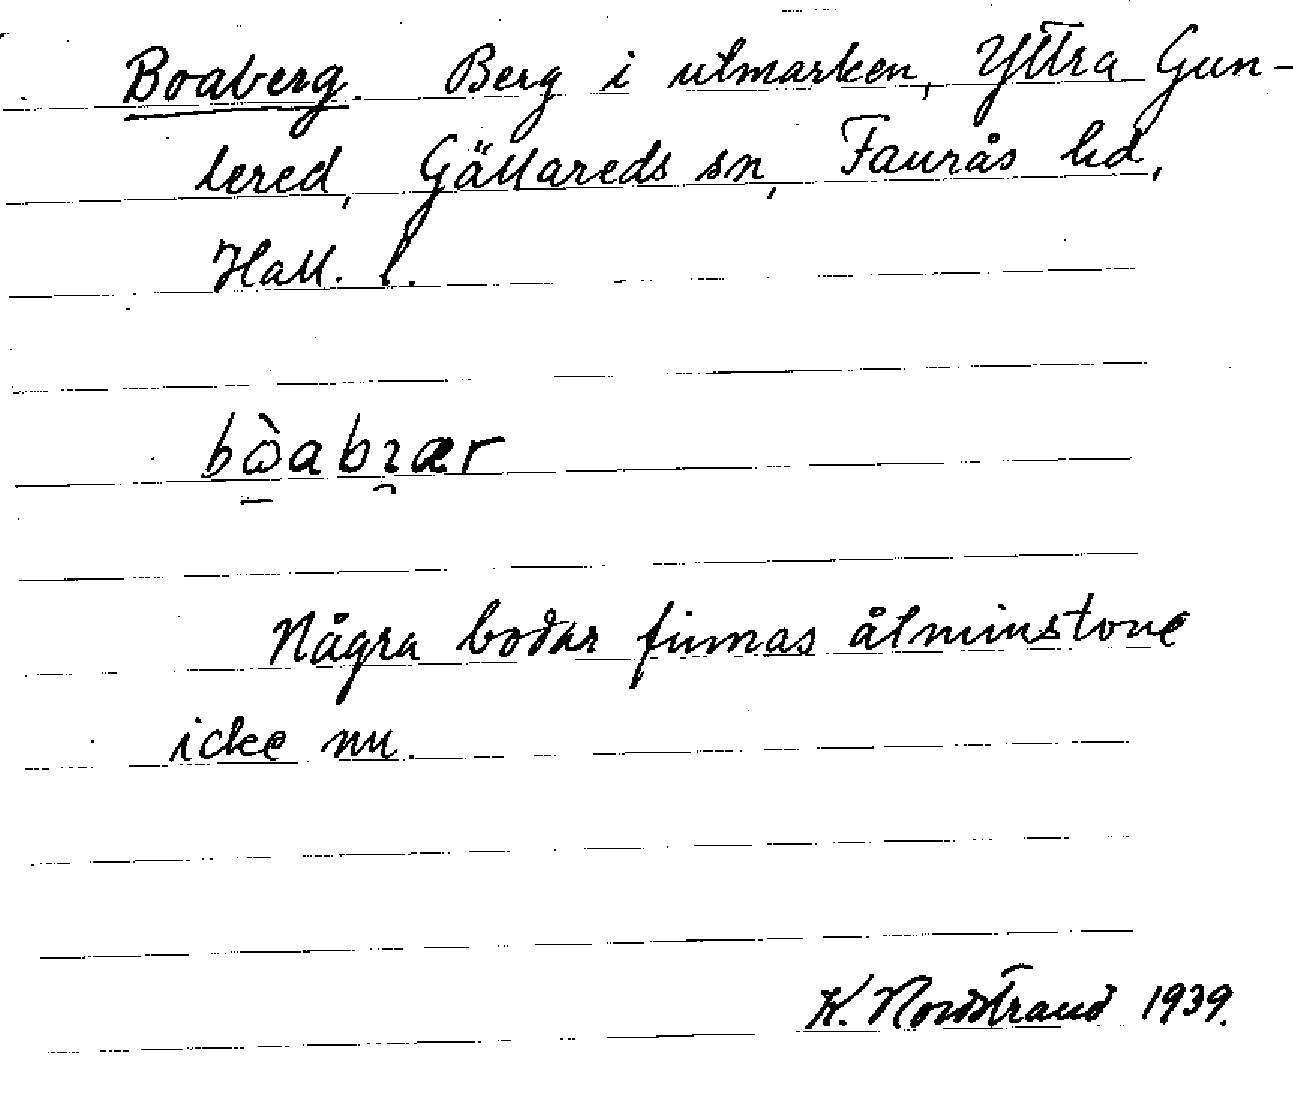 Boaberg. Berg i utmarken, Yttra Gun-
tered, Gällareds sn, Faurås hd,
Hall. l.
bò̱abɿ̯ær
Några bodar finnas åtminstone
icke nu.
K. Nordstrand 1939.